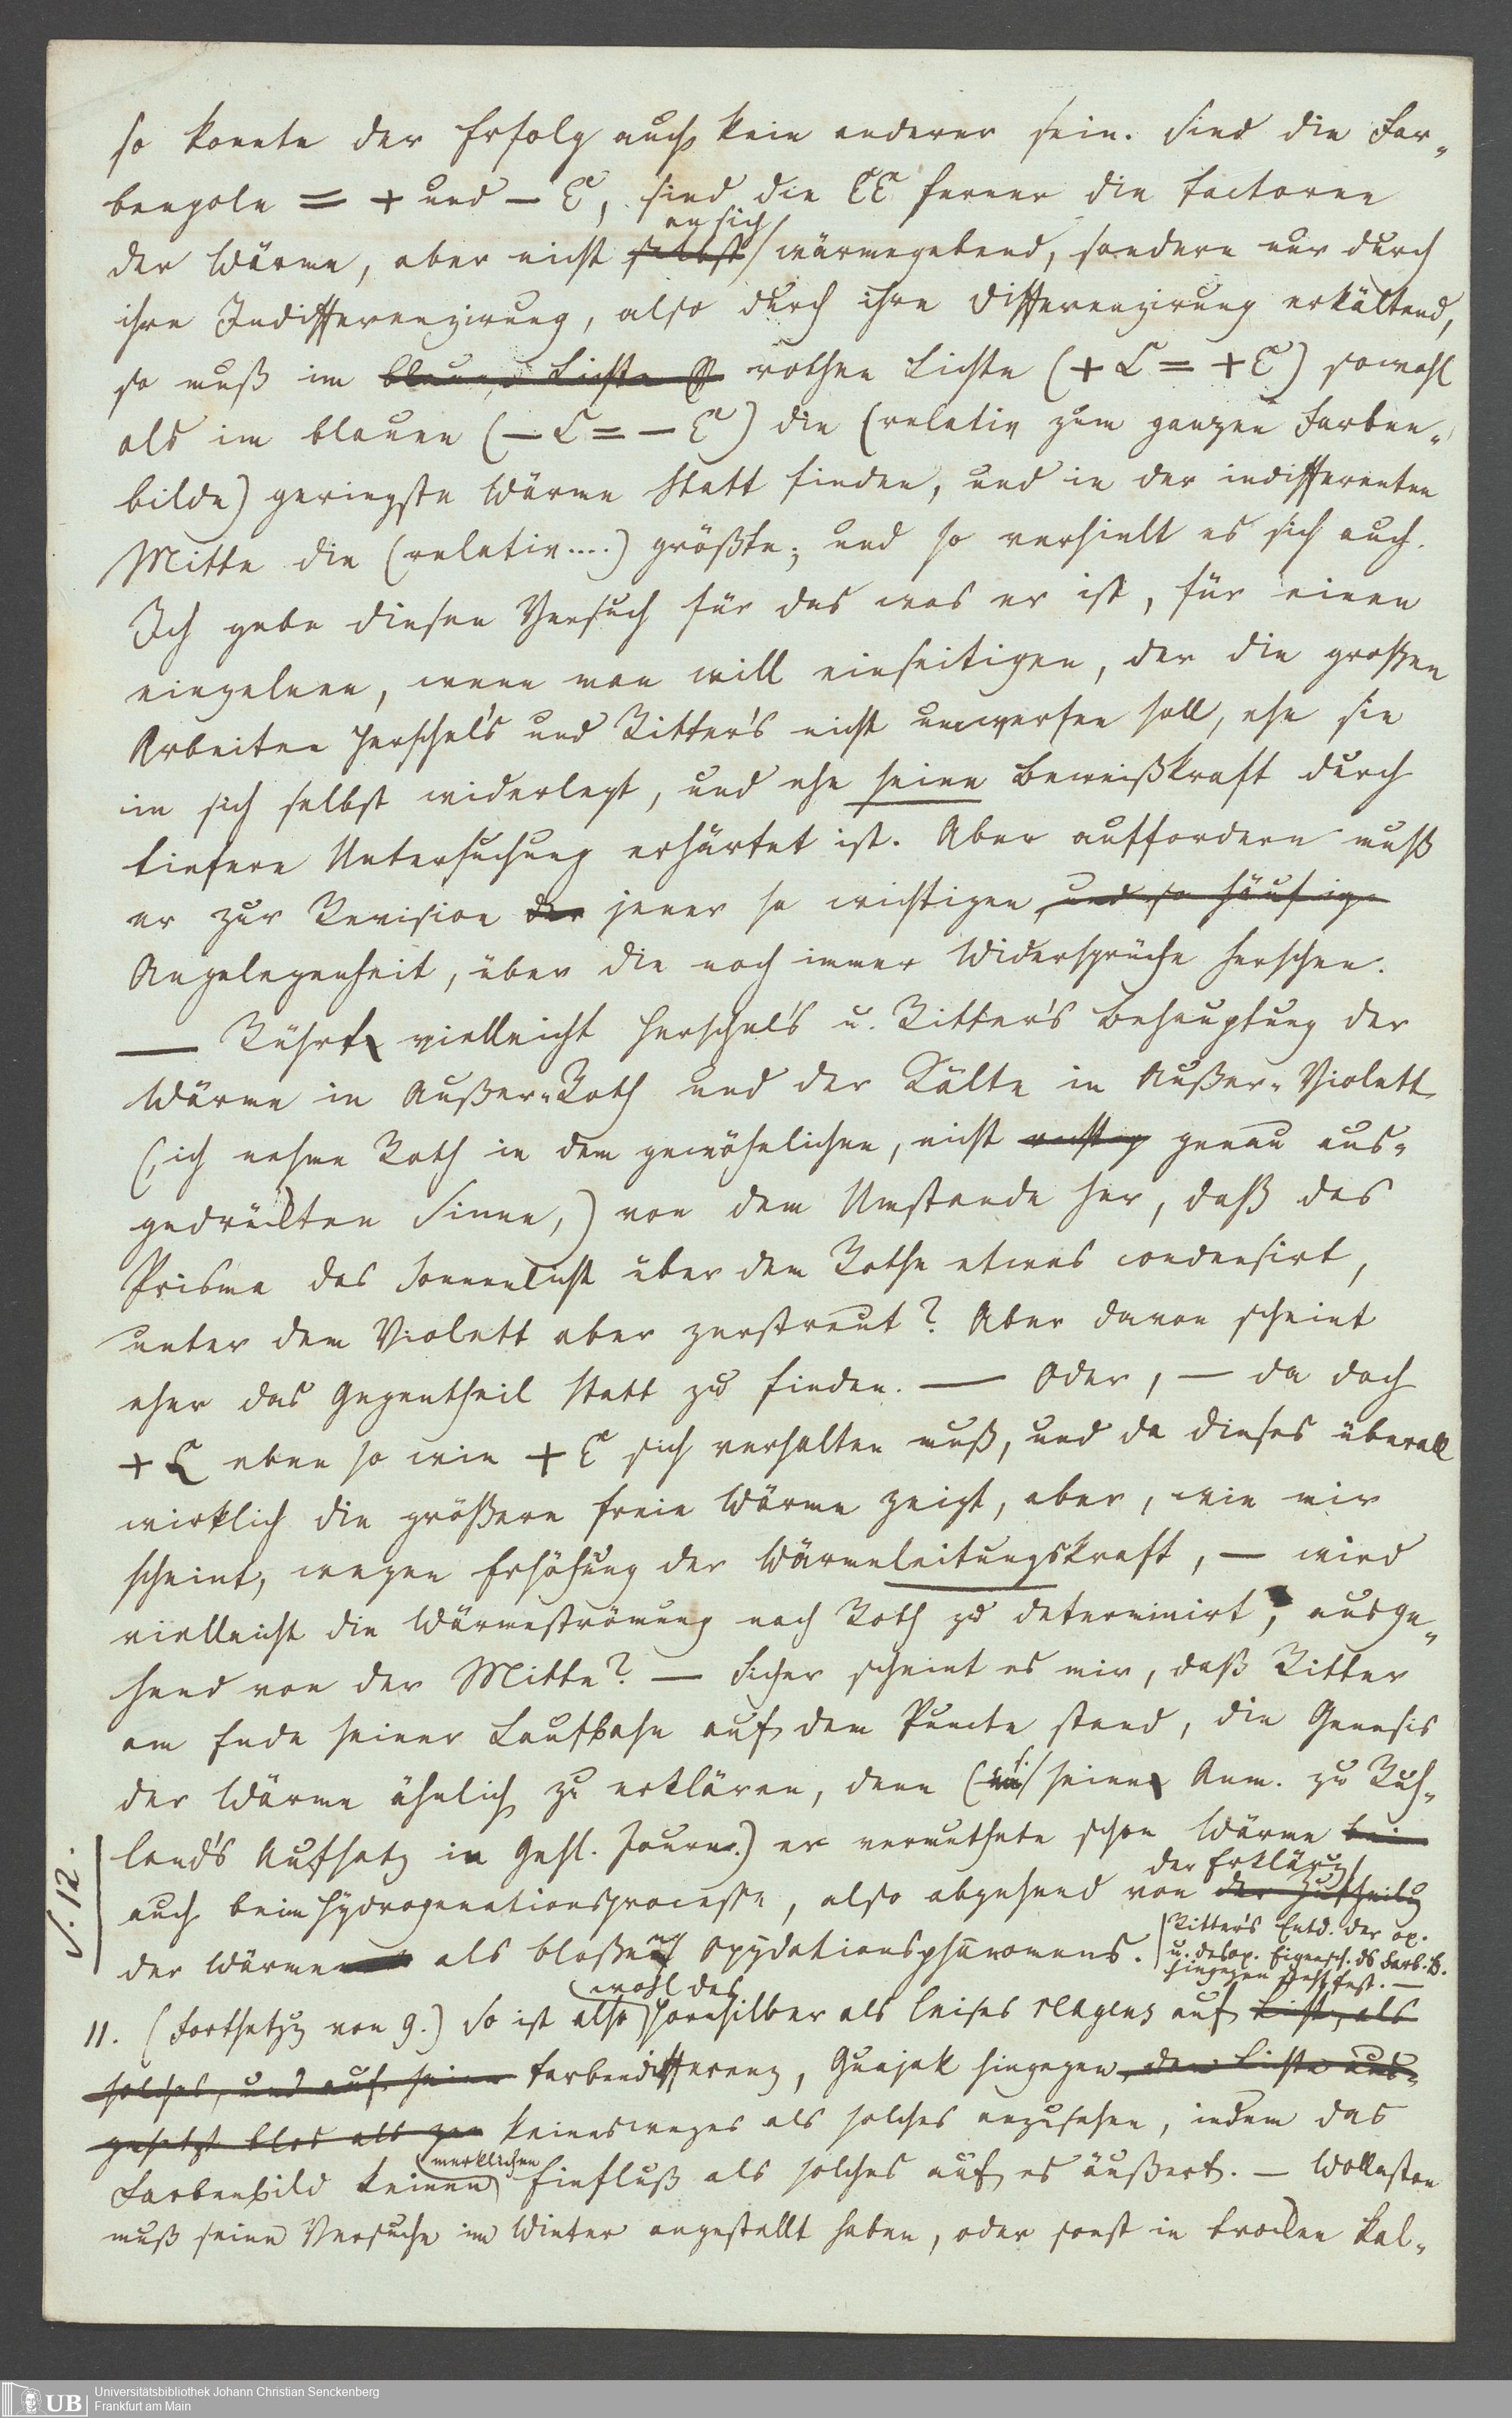 so konnte der Erfolg auch kein anderer sein. Sind die Far-
benpole = + und – E, sind die EE ferner die Factoren
der Wärme, aber nicht selbst an sich wärmegebend, sondern nur durch
ihre Indifferenzirung, also durch ihre Differenzirung erkältend,
so muß im blauen Lichte rothen Lichte (+ L = + E) sowohl
als im blauen (– L = – E) die (relativ zum ganzen Farben-
bilde) geringste Wärme Statt finden, und in der indifferenten
Mitte die (relativ....) größte; und so verhielt es sich auch.
Ich gebe diesen Versuch für das was er ist, für einen
einzelnen, wenn man will einseitigen, der die großen
Arbeiten Herschel's und Ritter's nicht umwerfen soll, ehe sie
in sich selbst widerlegt, und ehe seine Beweißkraft durch
tiefere Untersuchung erhärtet ist. Aber auffordern muß
er zur Revision der jener so wichtigen und so häufig
Angelegenheit, über die noch immer Widersprüche herschen.
— Rührt vielleicht Herschel's u. Ritter's Behauptung der
Wärme in Außer-Roth und der Kälte in Außer-Violett
(ich nehme Roth in dem gewöhnlichen, nicht richtig genau aus-
gedrückten Sinne,) von dem Umstande her, daß das
Prisma das Sonnenlicht über dem Rothe etwas condensirt,
unter dem Violett aber zerstreut? Aber davon scheint
eher das Gegentheil Statt zu finden. — Oder, — da doch
+ L eben so wie + E sich verhalten muß, und da dieses überall
wirklich die größere freie Wärme zeigt, aber, wie mir
scheint, wegen Erhöhung der Wärmeleitungskraft, — wird
vielleicht die Wärmeströmung nach Roth zu determinirt, ausge-
hend von der Mitte? — Sicher scheint es mir, daß Ritter
am Ende seiner Laufbahn auf dem Puncte stand, die Genesis
der Wärme ähnlich zu erklären, denn (in s. seine Anm. zu Ruh-
land's Aufsatz in Gehl. Journ.) er vermuthete schon Wärme bei
S. 12.
auch beim Hydrogenationsprocesse, also abgehend von der Erklärung
der Wärme als bloßen Oxydationsphänomens. Ritter's Entd. der ox.
u. desox. Eigensch. ds Farb. B.
hingegen steht fest. —
11. (Fortsetzg von 9.) So ist also wohl das Hornsilber als leises Reagens auf Licht, als
solches, und auf seine Farbendifferenz, Guajak hingegen, dem Lichte aus-
gesetzt blos als keineswegs als solches anzusehen, indem das
Farbenbild keinen merklichen Einfluß als solches auf es äußert. — Wollaston
muß seine Versuche im Winter angestellt haben, oder sonst in trocken kal-
UB Universitätsbibliothek Johann Christian Senckenberg
Frankfurt am Main